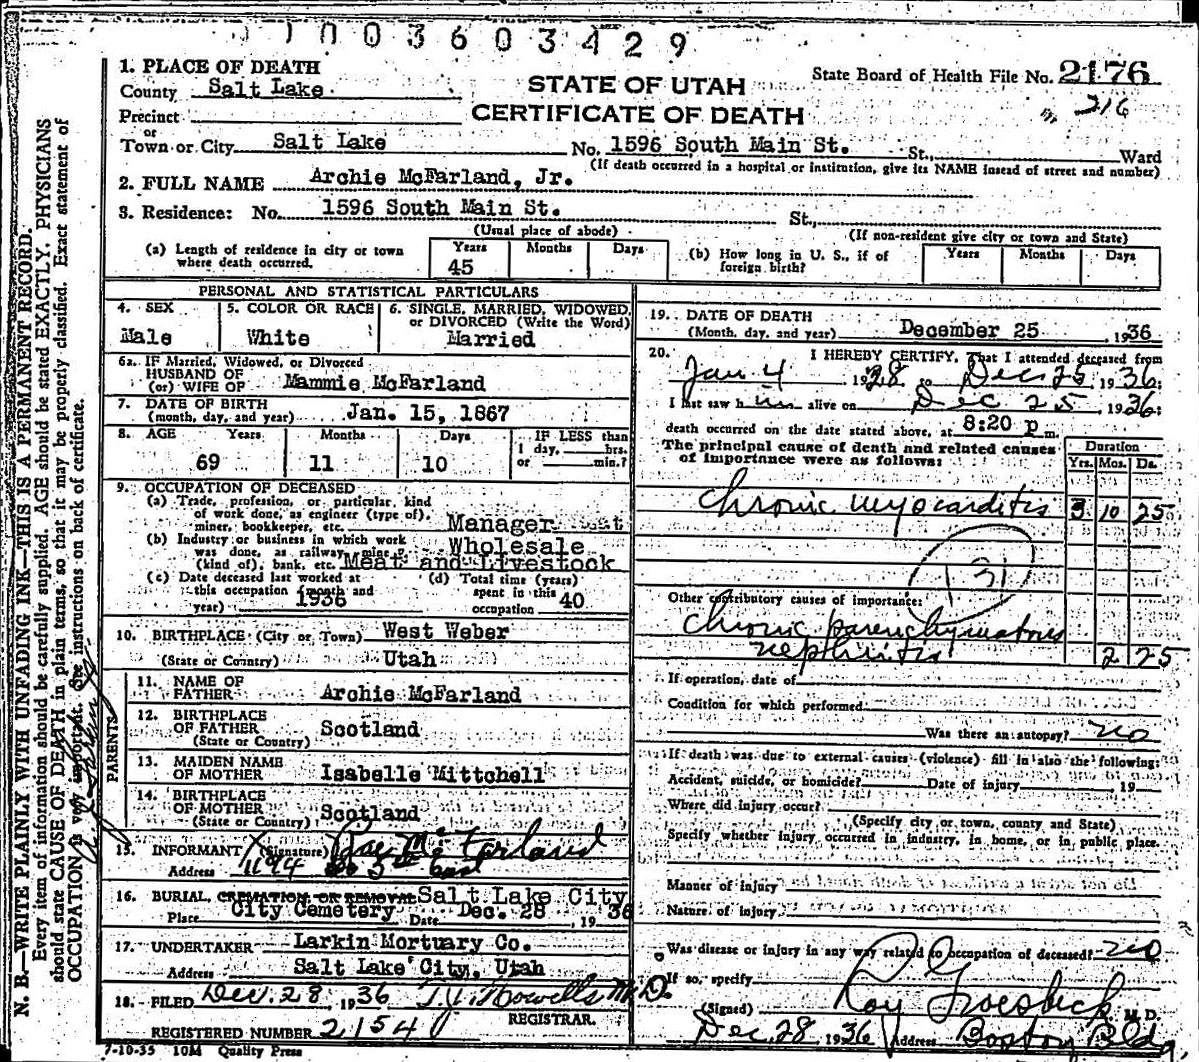 1003603429
1. PLACE OF DEATH
County Salt Lake
STATE OF UTAH
CERTIFICATE OF DEATH
State Board of Health File No. 2176
216
Precinct
or
Town or City Salt Lake No. 1596 South Main St. St., Ward
(If death occurred in a hospital or institution, give its NAME insead of street and number)
2. FULL NAME Archie McFarland, Jr.
3. Residence: No. 1596 South Main St. St.,
(Usual place of abode) (If non-resident give city or town and State)
(a) Length of residence in city or town where death occurred. Years 45 Months Days
(b) How long in U. S., if of foreign birth? Years Months Days
PERSONAL AND STATISTICAL PARTICULARS
4. SEX Male
5. COLOR OR RACE White
6. SINGLE, MARRIED, WIDOWED, or DIVORCED (Write the Word) Married
6a. IF Married, Widowed, or Divorced
HUSBAND OF
(or) WIFE OF Mammie McFarland
7. DATE OF BIRTH
(month, day, and year) Jan. 15, 1867
8. AGE Years 69 Months 11 Days 10
IF LESS than 1 day, hrs. or min.?
9. OCCUPATION OF DECEASED
(a) Trade, profession, or particular kind
of work done, as engineer (type of),
miner, bookkeeper, etc. Manager
(b) Industry or business in which work
was done, as railway, mine
(kind of), bank, etc. Wholesale
Meat and Livestock
(c) Date deceased last worked at
this occupation (month and
year) 1936
(d) Total time (years)
spent in this
occupation 40
10. BIRTHPLACE (City or Town) West Weber
(State or Country) Utah
PARENTS
11. NAME OF
FATHER Archie McFarland
12. BIRTHPLACE
OF FATHER Scotland
(State or Country)
13. MAIDEN NAME
OF MOTHER Isabelle Mittchell
14. BIRTHPLACE
OF MOTHER Scotland
(State or Country)
15. INFORMANT (Signature) Ray McFarland
Address 1194 So 5th East
16. BURIAL, CREMATION OR REMOVAL Salt Lake City
Place City Cemetery Date Dec. 28, 1936
17. UNDERTAKER Larkin Mortuary Co.
Address Salt Lake City, Utah
18. FILED Dec. 28, 1936 T.J. Howells M.D.
REGISTRAR.
REGISTERED NUMBER 2154
7-10-35 10M Quality Press
19. DATE OF DEATH
(Month, day, and year) December 25, 1936
20. I HEREBY CERTIFY, That I attended deceased from
Jan 4 1928 to Dec 25, 1936;
I last saw him alive on Dec 25, 1936;
death occurred on the date stated above, at 8:20 p m.
The principal cause of death and related causes
of importance were as follows:
Duration
Yrs. Mos. Ds.
Chronic myocarditis 3 10 25
131
Other contributory causes of importance:
Chronic parenchymatous
nephritis 2 25
If operation, date of
Condition for which performed
Was there an autopsy? no
If death was due to external causes (violence) fill in also the following:
Accident, suicide, or homicide? Date of injury 19
Where did injury occur?
(Specify city or town, county and State)
Specify whether injury occurred in industry, in home, or in public place.
Manner of injury
Nature of injury
Was disease or injury in any way related to occupation of deceased? no
If so, specify
(Signed) Roy Groesbeck M. D.
Dec 28 1936 Address Boston Bldg
N. B.—WRITE PLAINLY WITH UNFADING INK—THIS IS A PERMANENT RECORD.
Every item of information should be carefully supplied. AGE should be stated EXACTLY. PHYSICIANS
should state CAUSE OF DEATH in plain terms, so that it may be properly classified. Exact statement of
OCCUPATION is very important. See instructions on back of certificate.